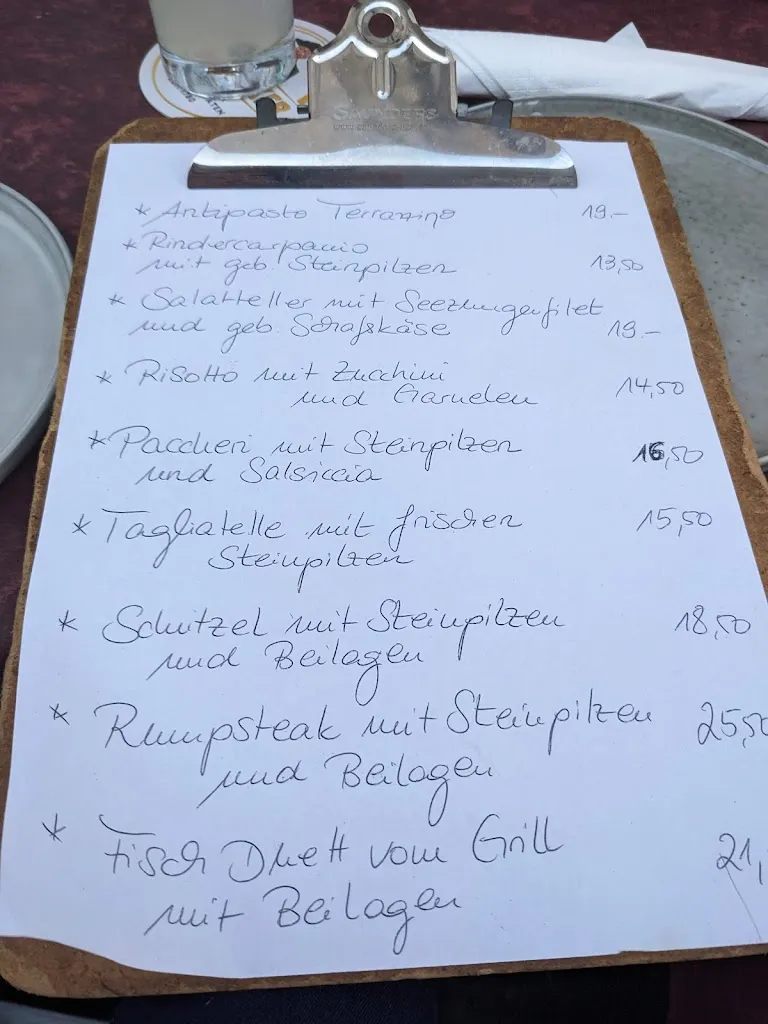 SAUNDERS
* Antipasto Terrazzino 19.-
* Rindercarpaccio
mit geb. Steinpilzen 13,50
* Salatteller mit Seezungenfilet
und geb. Schafskäse 19.-
* Risotto mit Zucchini
und Garnelen 14,50
* Paccheri mit Steinpilzen 16,50
und Salsiccia
* Tagliatelle mit frischen 15,50
Steinpilzen
* Schnitzel mit Steinpilzen 18,50
und Beilagen
* Rumpsteak mit Steinpilzen 25,50
und Beilagen
* Fisch Duett vom Grill 21,
mit Beilagen